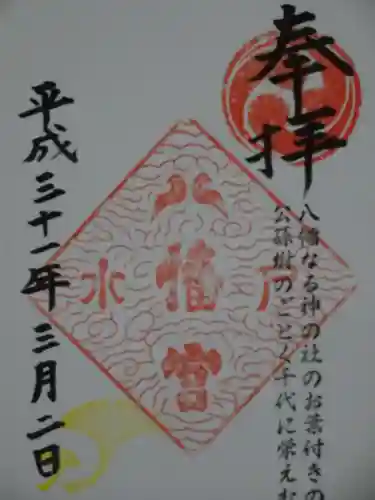 奉拝
八幡なる神の社のお葉付きの
公孫樹のごとく千代に栄えむ
水戸
八幡宮
平成三十一年三月二日